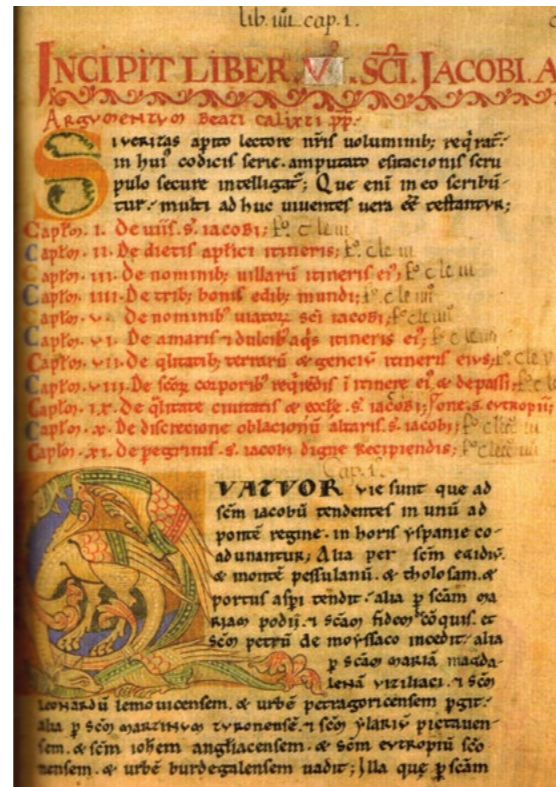 lib. iiii. cap. 1.
INCIPIT LIBER .V. SCI. JACOBI. A
Argumentum Beati Calixti pp.
SI veritas a perito lectore nris voluminib; reqrat.
in hui' codicis serie. amputato esitacionis scru
pulo secure intelligat; Que eni in eo scribu
tur. multi ad huc viventes vera ee testantur;
Captm. I. De viis. s. iacobi; fo. c le iii
Captm. II. De dietis aptici itineris; fo. c le iii
Captm. III. De nominib; villaru itineris ei'; fo. c le iii
Captm. IIII. De trib; bonis edib; mundi; fo. c le iiii
Captm. V. De nominib' viator sci iacobi; fo. c le iiii
Captm. VI. De amaris 7 dulcib' aqs itineris ei'; fo. c le iii
Captm. VII. De qlitatib; terraru & genciu itineris eius; fo. c le
Captm. VIII. De scor corporib' reqrendis i itinere ei' & de passi; fo. c le
Captm. IX. De qlitate civitatis & eccle. s. iacobi; one. s. eutropii;
Captm. X. De discrecione oblacionu altaris. s. iacobi;
Captm. XI. De pegrinis. s. iacobi digne recipiendis;
Cap. 1.
QUATUOR vie sunt que ad
scm iacobu tendentes in unu ad
ponte regine. in horis yspanie co-
adunantur; Alia per scm egidiu.
& monte pessulanu. & tholosam. &
portus aspi tendit. alia p scam ma
riam podii. 7 scam fidem de coquis. et
scm petru de moyssaco incedit. alia
p scam maria magda-
lena viziliaci. 7 scm
leonardu lemovicensem. & urbe petragoricensem pgit.
alia p scm martinum turonense. 7 scm ylariu pictaven-
sem. & scm iohem angliacensem. & scm eutropiu sco
nensem. & urbe burdegalensem vadit; Illa que p scam